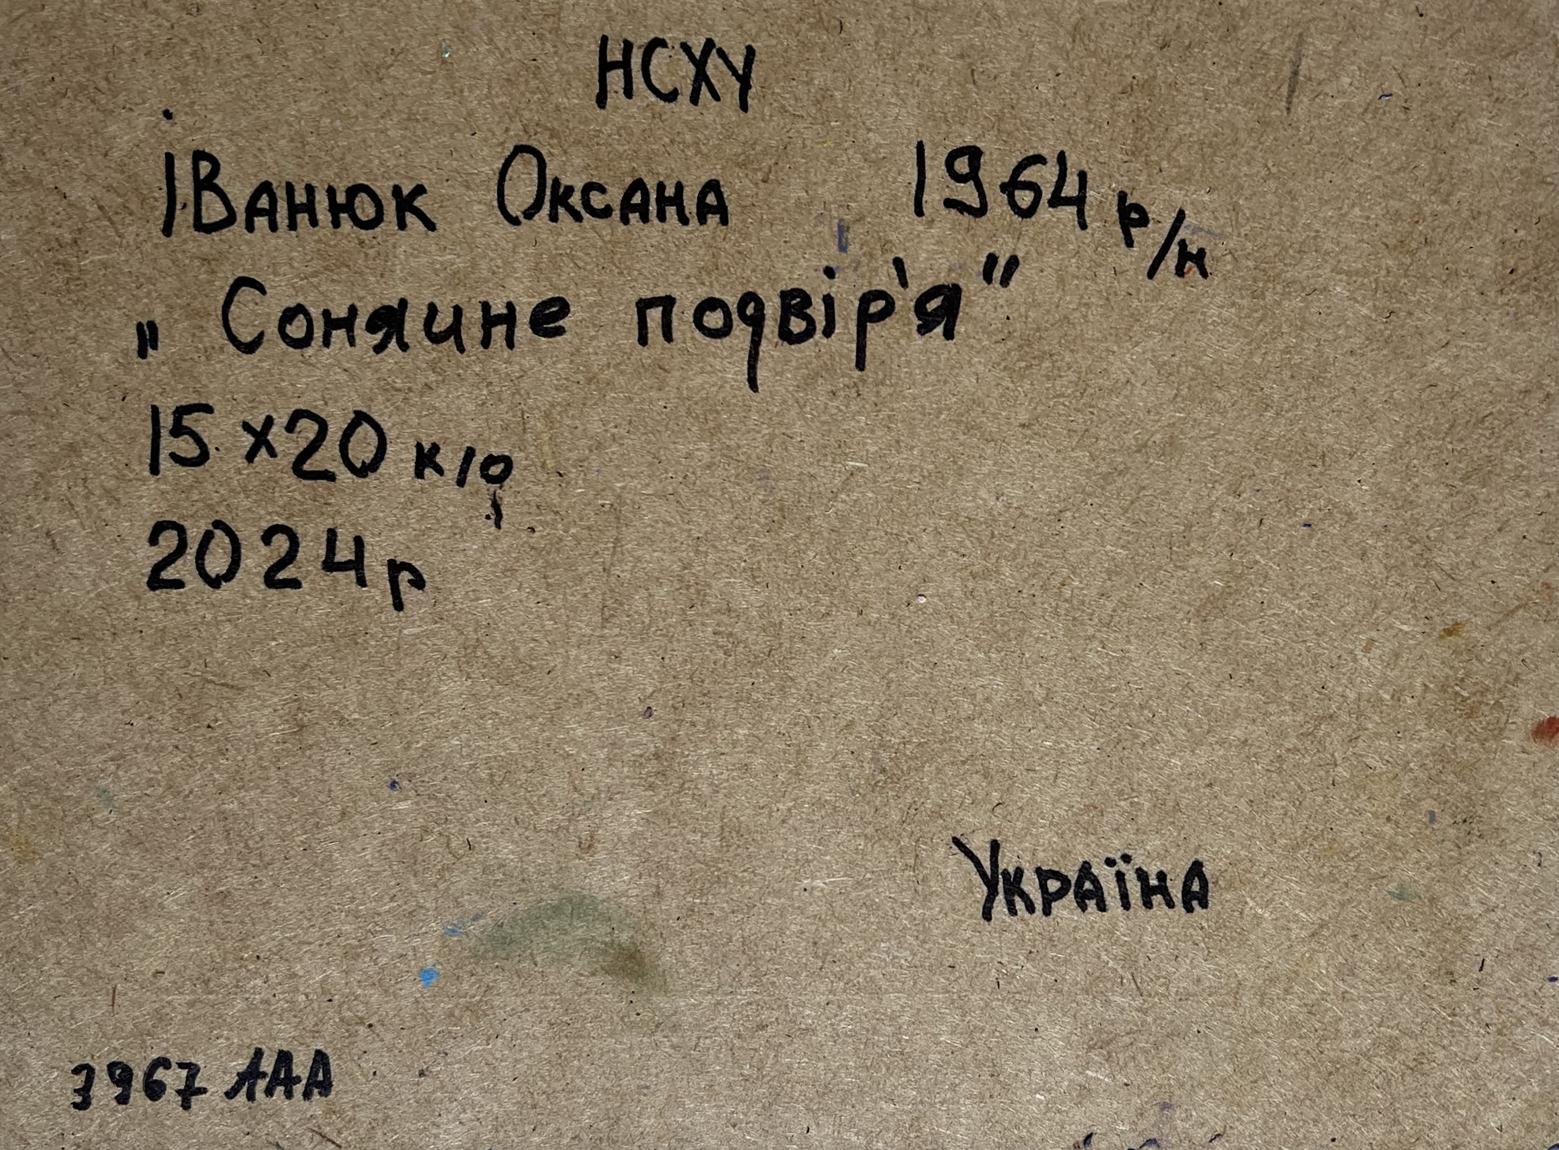 НСХУ
Іванюк Оксана 1964 р/н
„Сонячне подвір'я"
15x20 к/о
2024р
Україна
3967 AAA